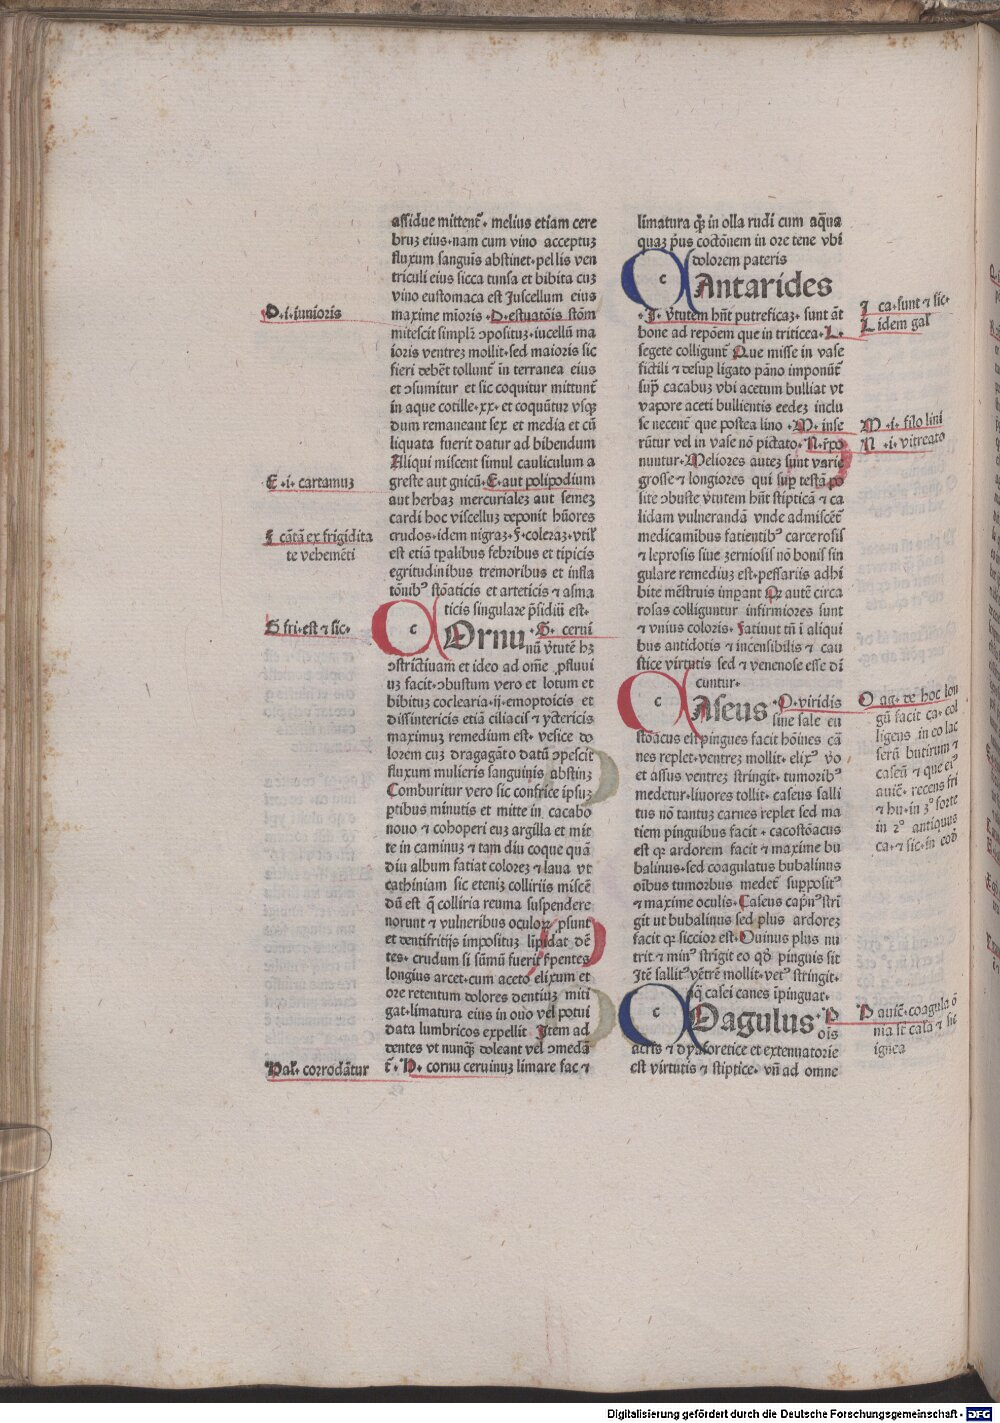 assidue mittent᷑ · melius etiam cere
bruꝫ eius · nam cum vino acceptuꝫ
fluxum sanguīs abstinet · pellis ven
triculi eius sicca tunsa et bibita cuꝫ
vino eustomaca est Juscellum eius
maxime mioris · D · estuatōis stōm
mitescit simplr̄ ↄpositꝰ · iucellū ma
ioris ventreꝫ mollit · sed maioris sic
fieri debēt tollunt᷑ in terranea eius
et ↄsumitur et sic coquitur mittunt᷑
in aque cotille · xx · et coquūtur vsqꝫ
dum remaneant sex et media et cū
liquata fuerit datur ad bibendum
Aliqui miscent simul cauliculum a
greste aut gnicū · E · aut polipodium
aut herbaꝫ mercurialeꝫ aut semeꝫ
cardi hoc viscelluꝫ deponit hūores
crudos · idem nigraꝫ · F · coleraꝫ · vtil᷑
est etiā tꝑalibus febribus et tipicis
egritudinibus tremoribus et infla
tōnibꝰ stōaticis et arteticis ⁊ asma
ticis singulare p̄sidiū est ·
c
Ornu · G · cerui
nū v̄tutē hꝫ
ↄstrictiuam et ideo ad om̄e ꝓfluui
uꝫ facit · ↄbustum vero et lotum et
bibituꝫ coclearia · ij · emoptoicis et
dissintericis etiā ciliacis ⁊ yctericis
maximuꝫ remedium est · vesice do
lorem cuꝫ dragagāto datū ↄpescit
fluxum mulieris sanguinis abstinꝫ
Comburitur vero sic confrice ipsuꝫ
ꝑtibus minutis et mitte in cacabo
nouo ⁊ cohoperi euꝫ argilla et mit
te in caminuꝫ ⁊ tam diu coque quā
diu album fatiat coloreꝫ ⁊ laua vt
cathiniam sic eteniꝫ colliriis miscē
dū est q̄ colliria reuma suspendere
norunt ⁊ vulneribus oculoꝝ ꝓsunt
et dentifritijs impositꝫ lipidat dē
tes · crudum si sūmū fuerit s̄pentes
longius arcet · cum aceto elixum et
ore retentum dolores dentiuꝫ miti
gat · limatura eius in ouo vel potui
data lumbricos expellit Item ad
dentes vt nunqꝫ doleant vel ↄmedā
t᷑ · H · cornu ceruinuꝫ limare fac ⁊
D · i · iunioris
E · i · cartamuꝫ
F cātā ex frigidita
te vehemēti
G fri · est ⁊ sic ·
Hal᷑ · corrodātur
limatura qꝫ in olla rudi cum aq̄ua
quaꝫ p̄us coctōnem in ore tene vbi
dolorem pateris
c
Antarides
· I · v̄tutem hn̄t putreficaꝫ · sunt āt
bone ad repōem que in triticea · L ·
segete colligunt᷑ Que misse in vase
fictili ⁊ desuꝑ ligato pāno imponūt᷑
suꝑ cacabuꝫ vbi acetum bulliat vt
vapore aceti bullientis eedeꝫ inclu
se necent᷑ que postea lino · M · inse
rūtur vel in vase nō pictato · N · r̄po
nuntur · Meliores auteꝫ sunt varie
grosse ⁊ longiores qui suꝑ testā po
site ↄbuste v̄tutem hn̄t stipticā ⁊ ca
lidam vulnerandā vnde admiscēt᷑
medicamibus fatientibꝰ carcerosis
⁊ leprosis siue zerniosis nō bonis sin
gulare remediuꝫ est · pessariis adhi
bite mēstruis imꝑant Qꝝ autē circa
rosas colliguntur infirmiores sunt
⁊ vnius coloris · fatiunt tn̄ i aliqui
bus antidotis ⁊ incensibilis ⁊ cau
stice virtutis sed ⁊ venenose esse di
cuntur ·
c
Aseus · O · viridis
sine sale eu
stōacus est pingues facit hōines cā
nes replet · ventreꝫ mollit · elixꝰ vō
et assus ventreꝫ stringit · tumoribꝰ
medetur · liuores tollit · caseus salli
tus nō tantuꝫ carnes replet sed ma
tiem pinguibus facit · cacostōacus
est qꝝ ardorem facit ⁊ maxime bu
balinus · sed coagulatus bubalinus
oībus tumorbus medet᷑ suꝑpositꝰ
⁊ maxime oculis · Caseus capn̄ꝰ stri
git ut bubalinus sed plus ardoreꝫ
facit qꝝ siccior est · Ouinus plus nu
trit ⁊ minꝰ strīgit eo qđ pinguis sit
Itē sallitꝰ vētrē mollit · vetꝰ stringit ·
aq̄ casei canes īpinguat ·
c
Oagulus · P
oīs
acris ⁊ dyaforetice et extenuatorie
est virtutis ⁊ stiptice · vn̄ ad omne
I ca · sunt ⁊ sic ·
L idem gal᷑
M · i · filo lini
N · i · vitreato
O ag · de hoc lon
gū facit ca · col
ligens in eo lac
serū butirum ⁊
caseū ⁊ que eiꝰ
auic̄ · recens fri
⁊ hu · in 3º forte
in 2º antiquus
ca · ⁊ sic · in eođ
P auic̄ · coagula ō
nia st̄ cała ⁊ s̄t
ignea
Digitalisierung gefördert durch die Deutsche Forschungsgemeinschaft - DFG